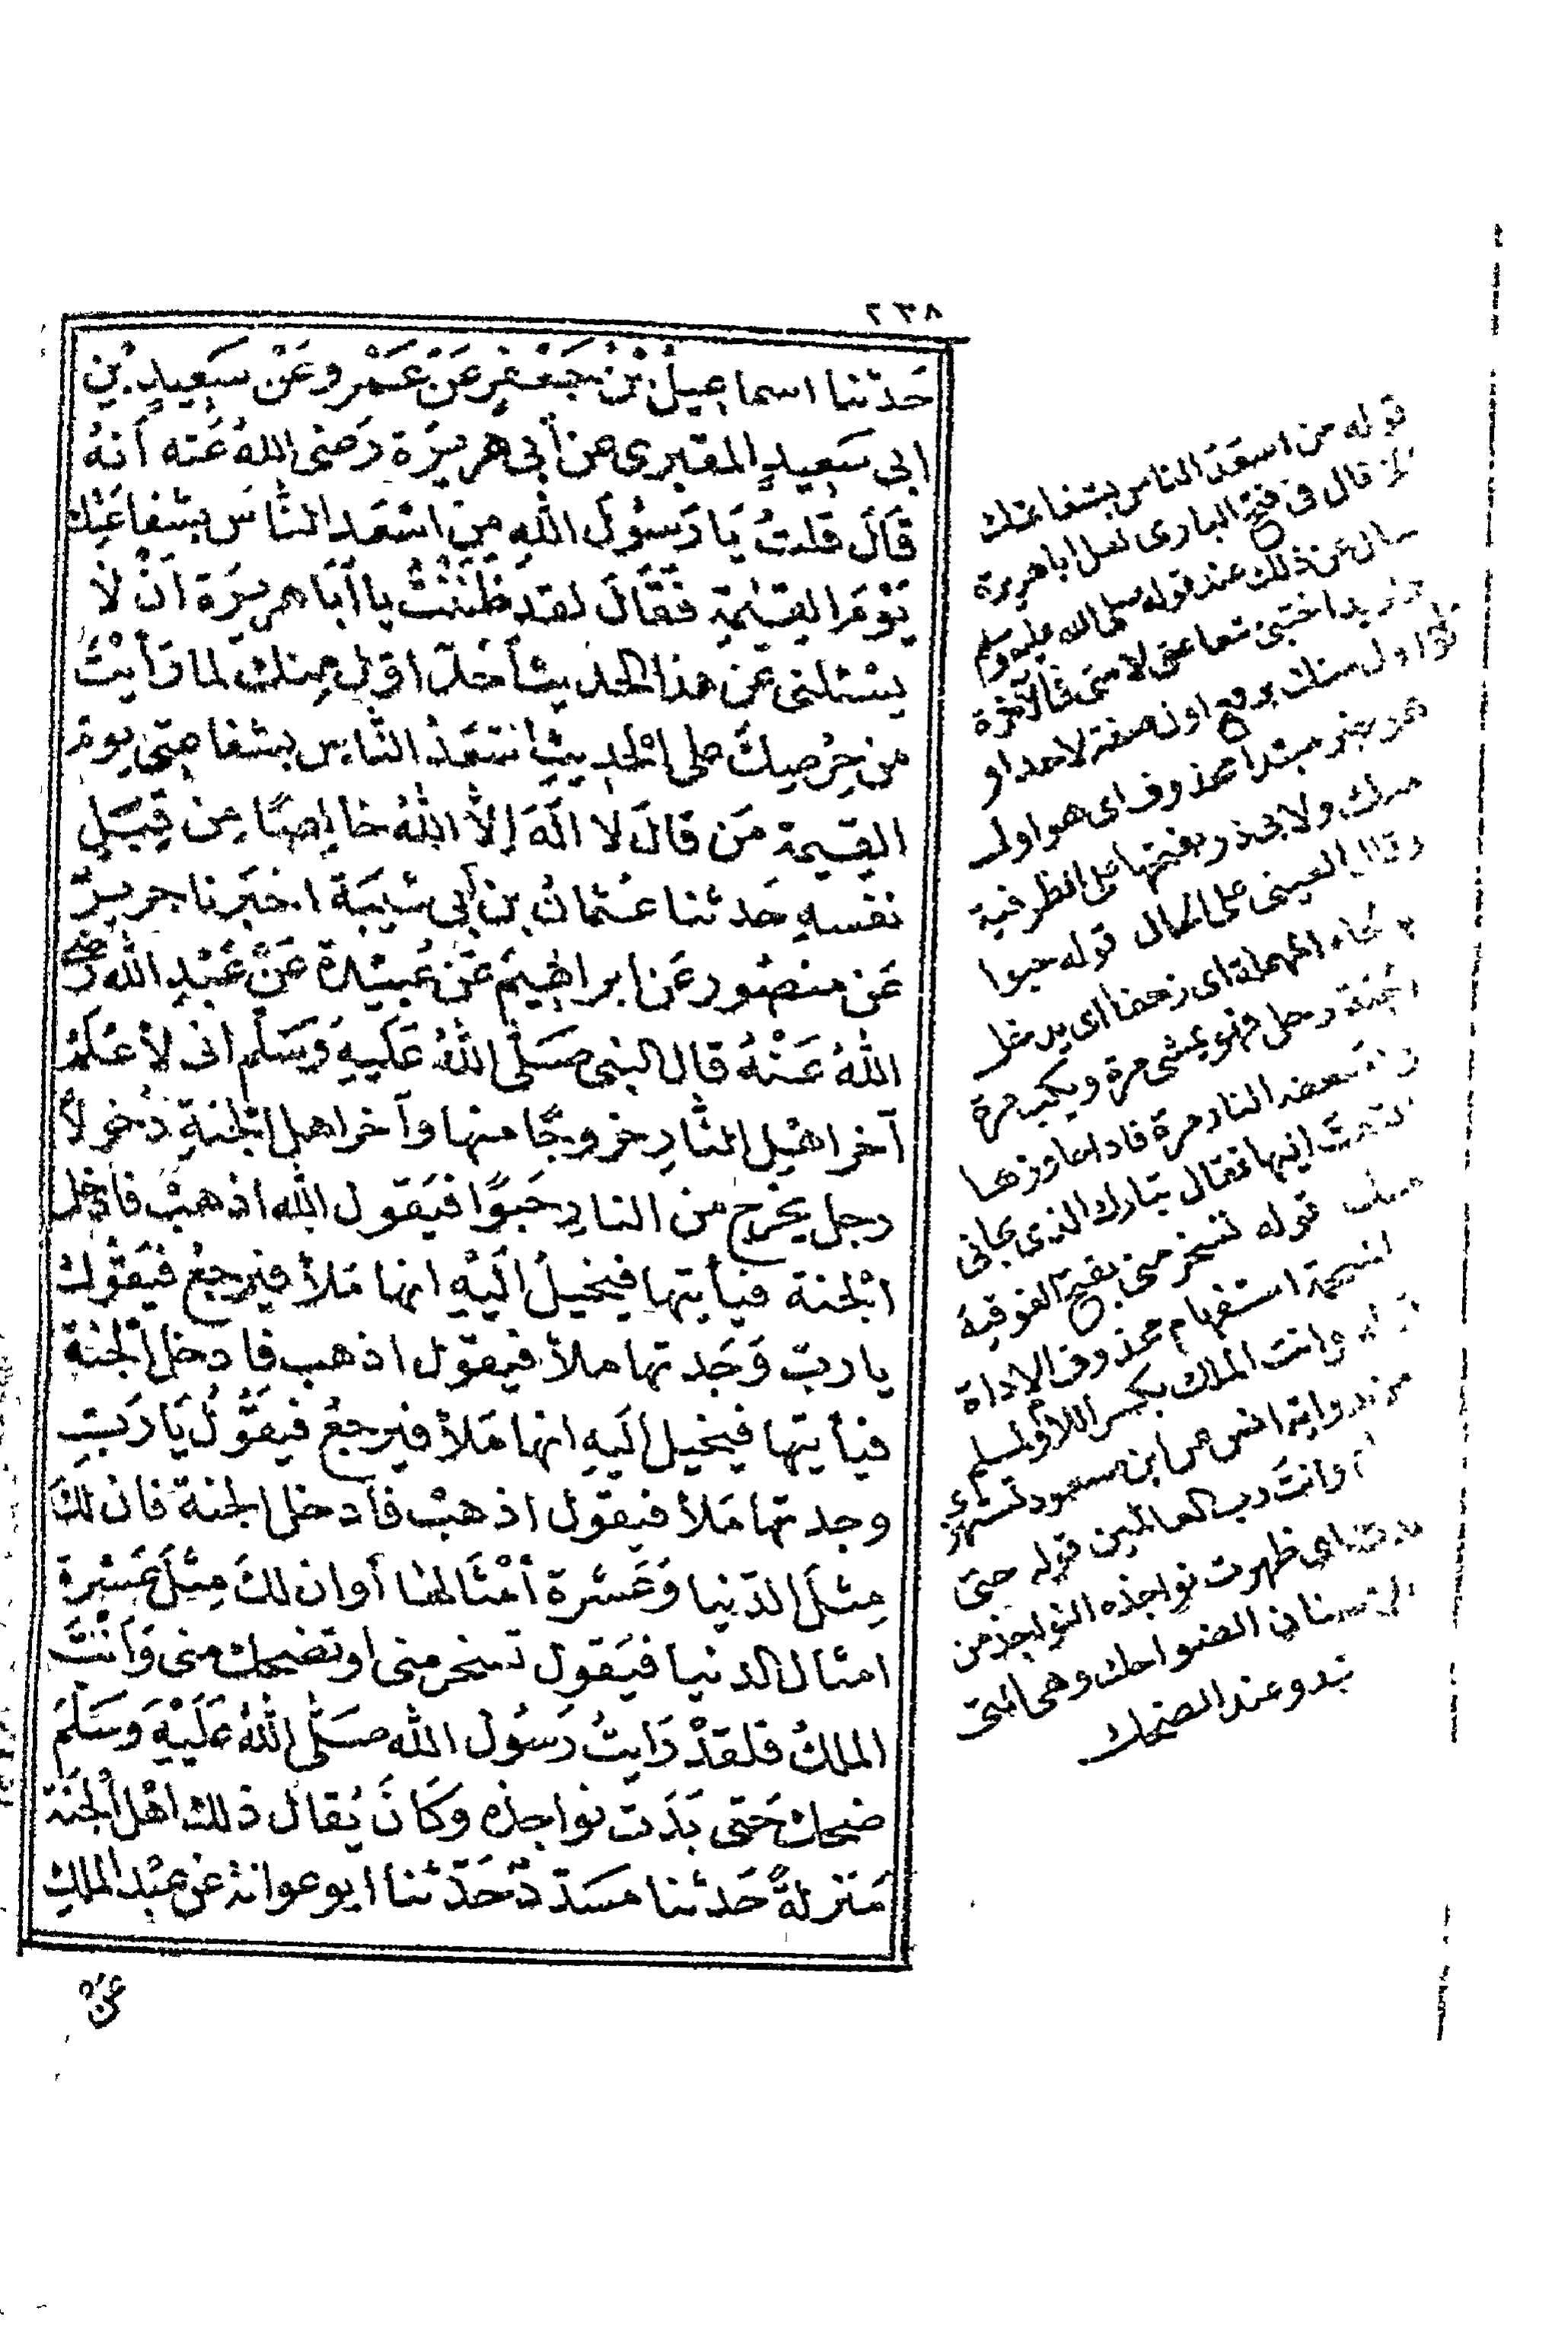 ٢٣٨
حَدثنا اسماعِيلُ بْنُ جَعْفَرٍ عَنْ عَمْرو عَنْ سَعِيدِ بْنِ
ابى سَعِيدٍ المقبرى عن أبى هريرَة رَضى اللهُ عَنه أنهُ
قَالَ قلتُ يَا رَسُولَ اللهِ مِنَ اسْعَد النَّاسَ بشفاعَتِك
يَوْمَ القيٰمةِ فَقَالَ لقد ظَنَنْتُ يا أبَا هريرَة انْ لَا
يسْئلنى عَن هذا الحديث أحَد اوّل مِنك لما رَأيْتُ
من حِرْصِكَ على الْحَدِيثِ اسْعَدُ النَّاسِ بشفاعَتِى يومَ
القيمة مَن قالَ لا الٰهَ إلَّا اللهُ خَالِصًا مِن قِبَلِ
نفسهِ حَدثنا عثمانُ بن أبى شَيبَة اخبَرنا جريرٌ
عَن منصُور عَن ابراهيمَ عَن عُبَيْدة عَنْ عَبْدِ الله رَضى
اللهُ عَنْهُ قال النبى صَلَّى اللهُ عَلَيهِ وَسَلَّم انى لأعْلَمُ
آخر اهْلِ النَّارِ خروجًا منها وآخر اهل الجنةِ دُخولًا
رجل يخرج من النارِ حَبوًا فيَقول الله اذهبْ فادخل
الْجنة فيأتيها فيخيلُ الَيْهِ انها مَلأ فيَرجعُ فيَقُولُ
يا ربّ وَجَدتها ملأ فيقول اذهب فادخل الْجنة
فيأتيها فيخيل إلَيهِ انها مَلأ فيرجعُ فيقُولُ يَا رَبِّ
وجدتها مَلأ فيقول اذهبْ فأدخل الجنة فان لكَ
مِثلَ الدّنيا وَعَشْرة أمْثَالها أوان لكَ مِثْلَ عَشرة
امثال الدنيا فيَقول تسخر منى او تضحك منى وَأنتَ
الملكُ فلقدْ رَايتُ رَسُول الله صَلَّى اللهُ عَلَيْهِ وَسَلَّمَ
ضحك حَتى بَدَت نواجذه وَكَانَ يُقال ذلك اهْل الْجنَة
مَنزلةً حَدثنا مسَدّدٌ حَدّثنا ابو عوانة عَن عَبْد الملكِ
قوله من اسعَد الناس بشفاعتك
الخ قال فى فتح البارى لعل ابا هريرة
سأل عن ذلك عند قوله صلى الله عليه وسلم
اختبئ شفاعتى لامتى فى الآخرة
قوله اول منك برفع اول صفة لاحد او
هو خبر مبتدأ محذوف اى هو اول
منك ولا بى ذر بفتحها على الظرفية
وقال العينى على الحال قوله حبوا
بالحاء المهملة اى زحفا
الجنة رجل فهو يمشى مرة ويكبو مرة
وتسعفه النار مرة فاذا جاوزها
التفت اليها فقال تبارك الذى نجانى
منك قوله تسخر منى بفتح الفوقية
استفهام محذوف الاداة
قوله وانت الملك بكسر اللام ولمسلم
من رواية انس عن ابن مسعود تستهزئ
وانت رب العالمين قوله حتى
بدت اى ظهرت نواجذه النواجذ من
الاسنان الضواحك وهى التى
تبدو عند الضحك